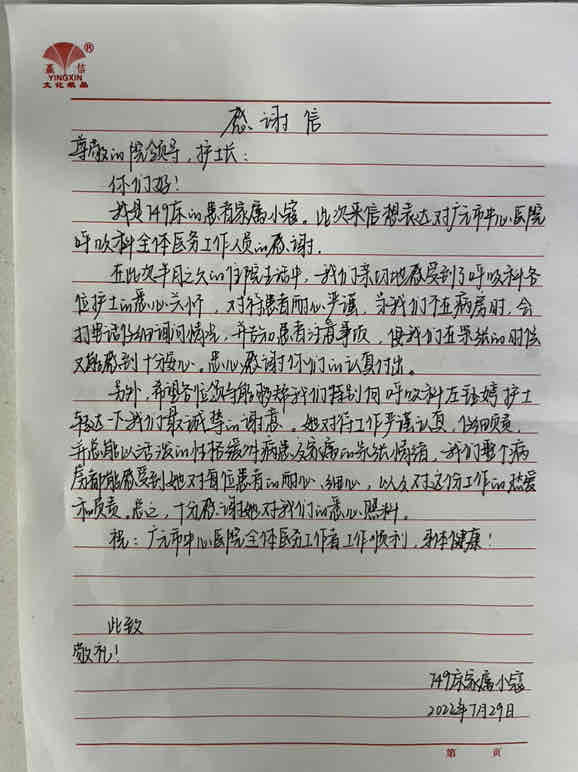 ®
赢 信
YINGXIN
文化纸品
感谢信
尊敬的院领导，护士长：
你们好！
我是749床的患者家属小寇。此次来信想表达对广元市中心医院
呼吸科全体医务工作人员的感谢。
在此次半月之久的住院生活中，我们亲切地感受到了呼吸科各
位护士的悉心关怀，对待患者耐心严谨，当我们不在病房时，会
打电话仔细询问情况，并告知患者注意事项，使我们在焦急的时候
又能感到十分安心。忠心感谢你们的认真付出。
另外，希望各位领导能够帮我们特别向呼吸科左钰嫣护士
转达一下我们最诚挚的谢意。她对待工作严谨认真，仔细负责，
并总能以活泼的性格缓解病患及家属的焦急情绪，我们整个病
房都能感受到她对每位患者的耐心、细心，以及对这份工作的热爱
和负责。总之，十分感谢她对我们的悉心照料。
祝：广元市中心医院全体医务工作者工作顺利，身体健康！
此致
敬礼！
749床家属小寇
2022年7月29日
第 页